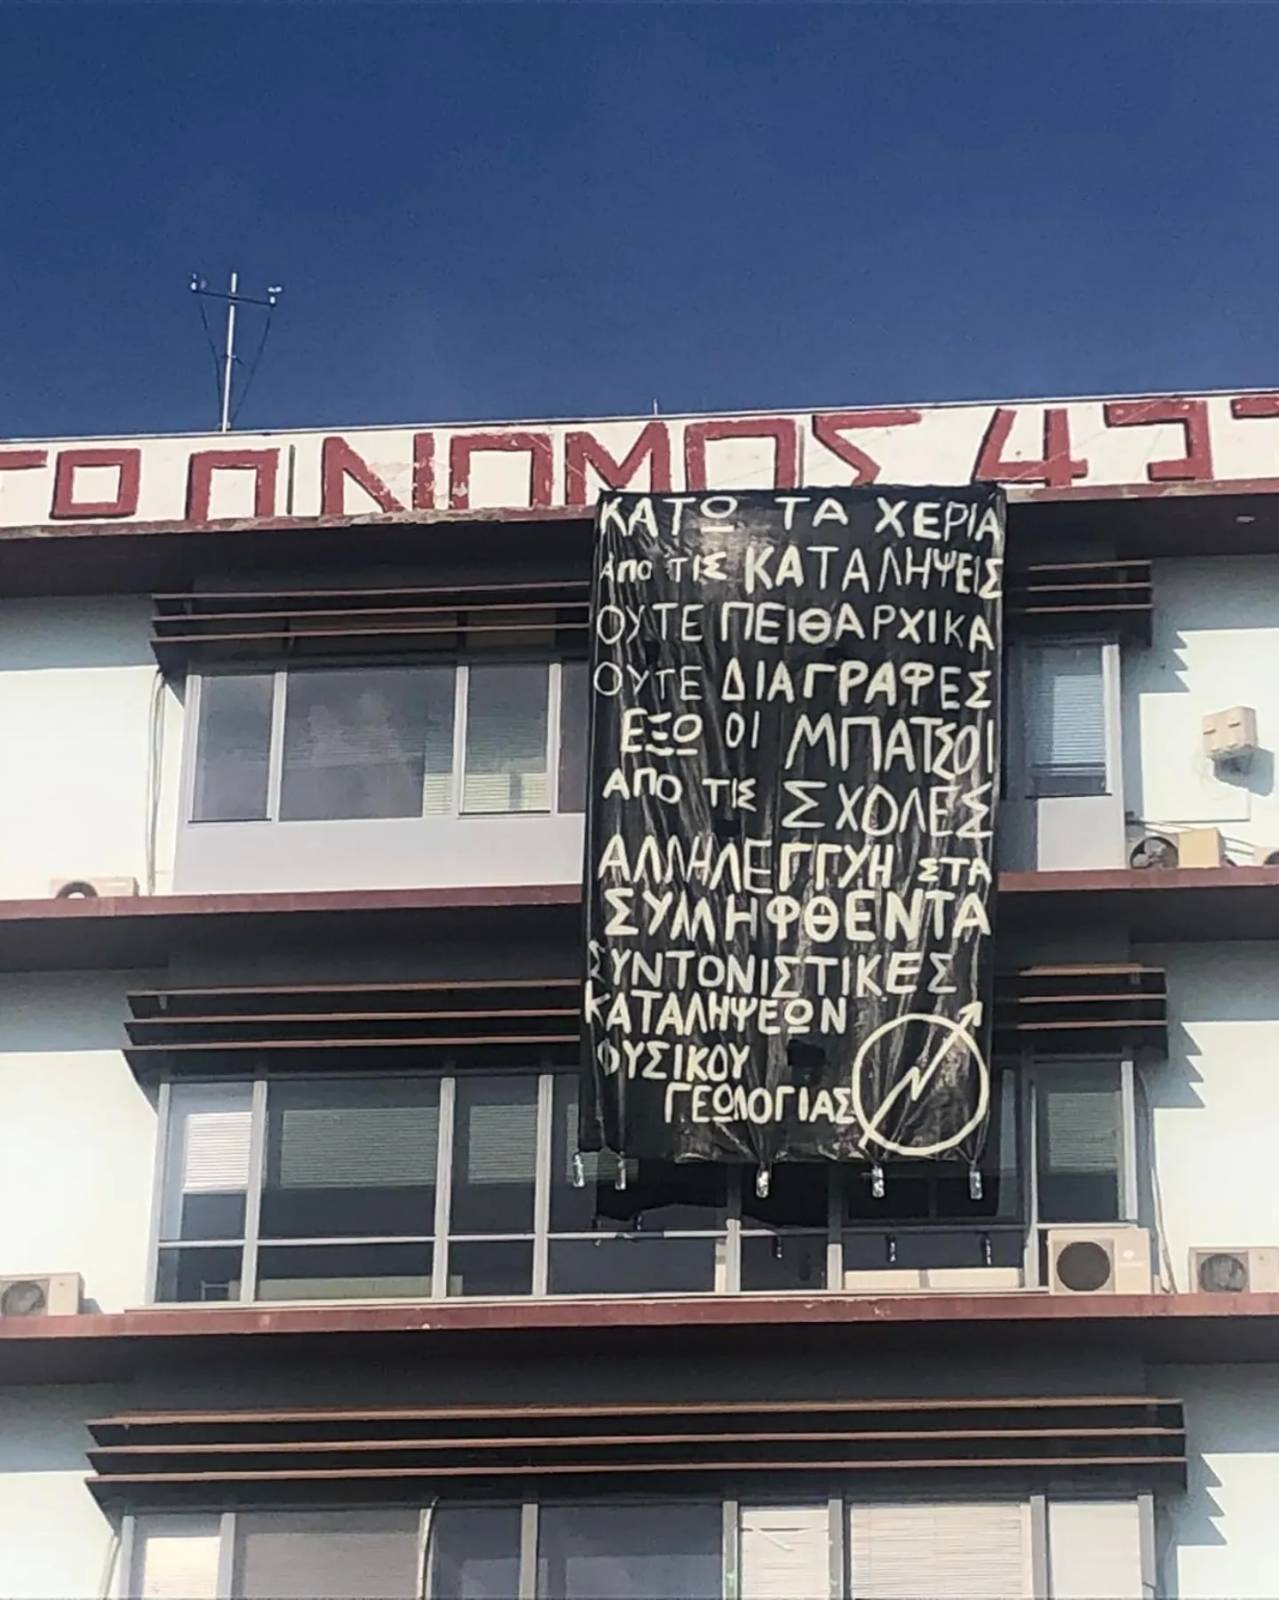 Ο ΝΟΜΟΣ 4
ΚΑΤΩ ΤΑ ΧΕΡΙΑ
ΑΠΟ ΤΙΣ ΚΑΤΑΛΗΨΕΙΣ
ΟΥΤΕ ΠΕΙΘΑΡΧΙΚΑ
ΟΥΤΕ ΔΙΑΓΡΑΦΕΣ
ΕΞΩ ΟΙ ΜΠΑΤΣΟΙ
ΑΠΟ ΤΙΣ ΣΧΟΛΕΣ
ΑΛΛΗΛΕΓΓΥΗ ΣΤΑ
ΣΥΛΛΗΦΘΕΝΤΑ
ΣΥΝΤΟΝΙΣΤΙΚΕΣ
ΚΑΤΑΛΗΨΕΩΝ
ΦΥΣΙΚΟΥ
ΓΕΩΛΟΓΙΑΣ